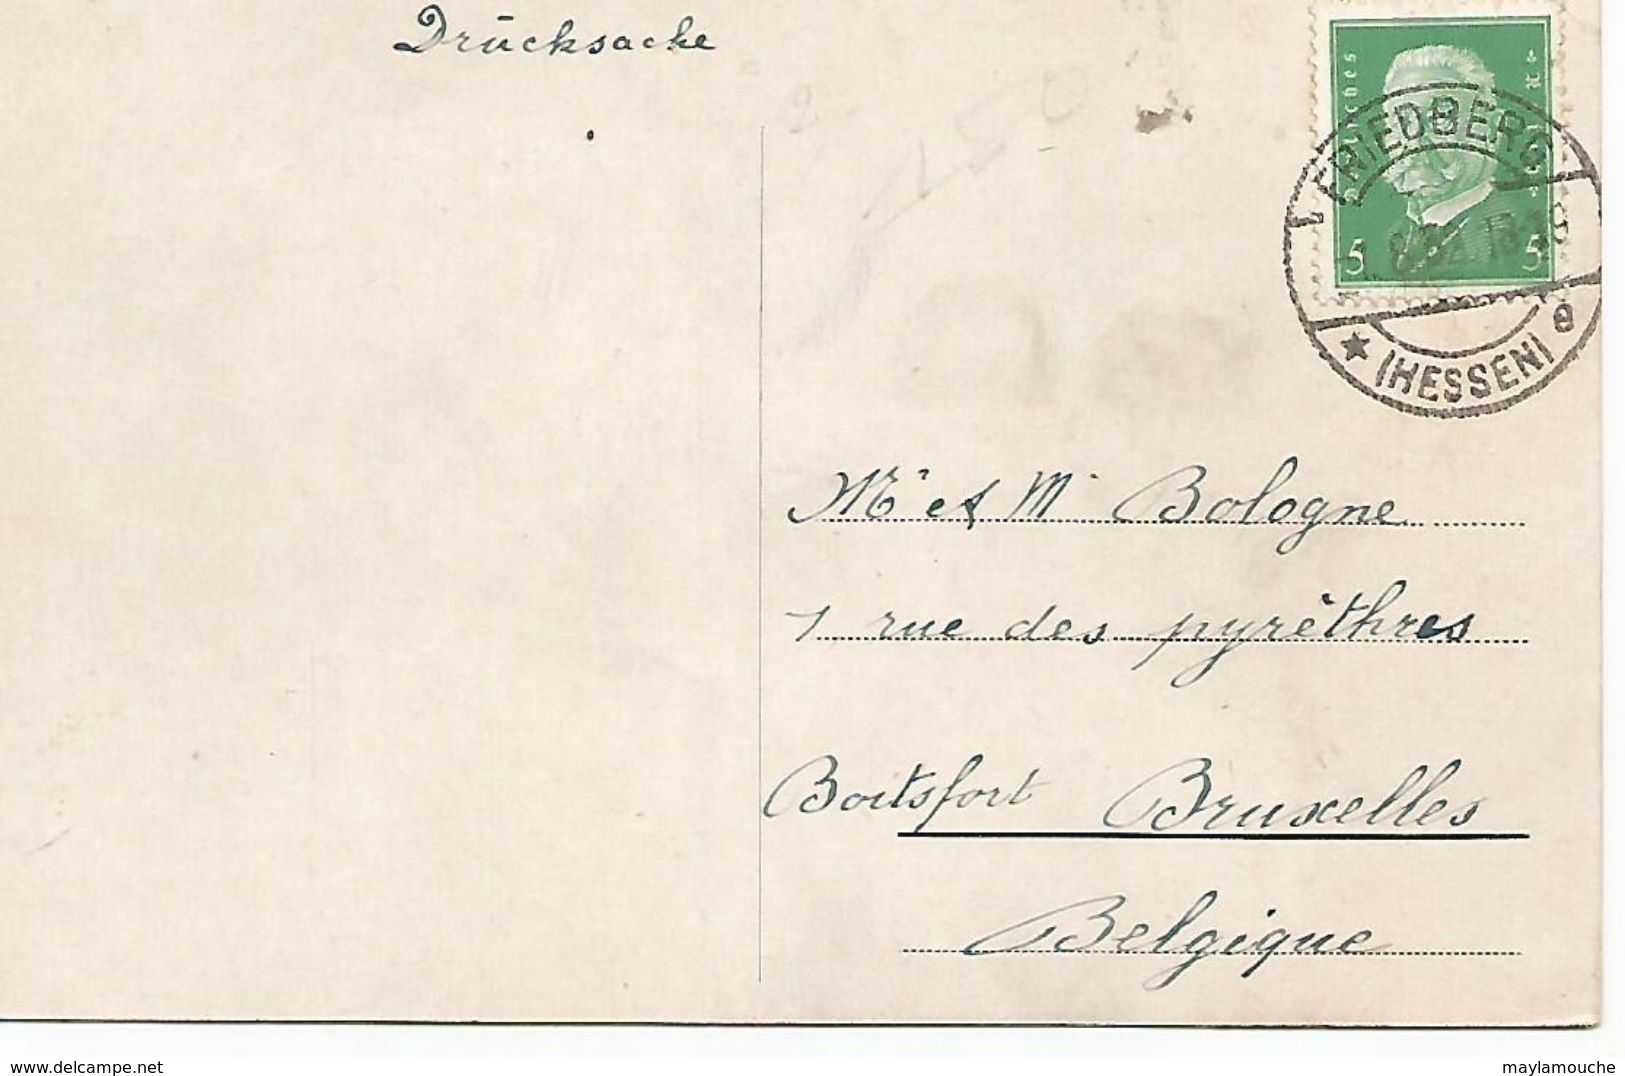 Drūcksache
FRIEDBERG
5 5
(HESSEN) e
Mr et M Bologne
1 rue des pyrèthres
Boitsfort Bruxelles
Belgique
delcampe.net
maylamouche